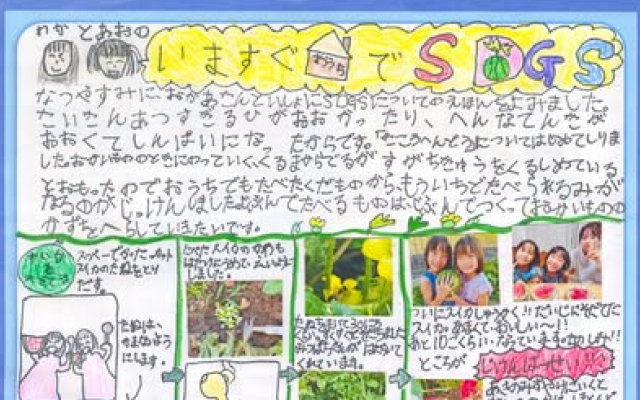 わかとあおの
いますぐおうちでSDGS
なつやすみに、おかあさんといっしょにSDGSについてのえほんをよみました。
さいきんあつすぎるひがおおかったり、へんなてんきが
おおくてしんぱいになったからです。「きこうへんどう」についてはじめてしりま
した。おかいもののときにのっていく、くるまからでるガスがちきゅうをくるしめている
とおもったのでおうちでもたべたくだものから、もういちどたべられるみが
なるのかじっけんしました。じぶんでたべるものはじぶんでつくっておかいものの
かずをへらしていきたいです。
スーパーでかったカット
スイカのたねをとり
だす。
たねは、
します。
たべたスイカのかわも
はたけにうめてえいように
しました。
みつばちが はたらいて
くれています。
ついにスイカしゅうかく!!だいじにそだてた
スイカはあまくておいしい〜!!
あと10こくらいなっています。たのしみ!!
ところが
じけんはっせい!!
あさのみずやりにいくと